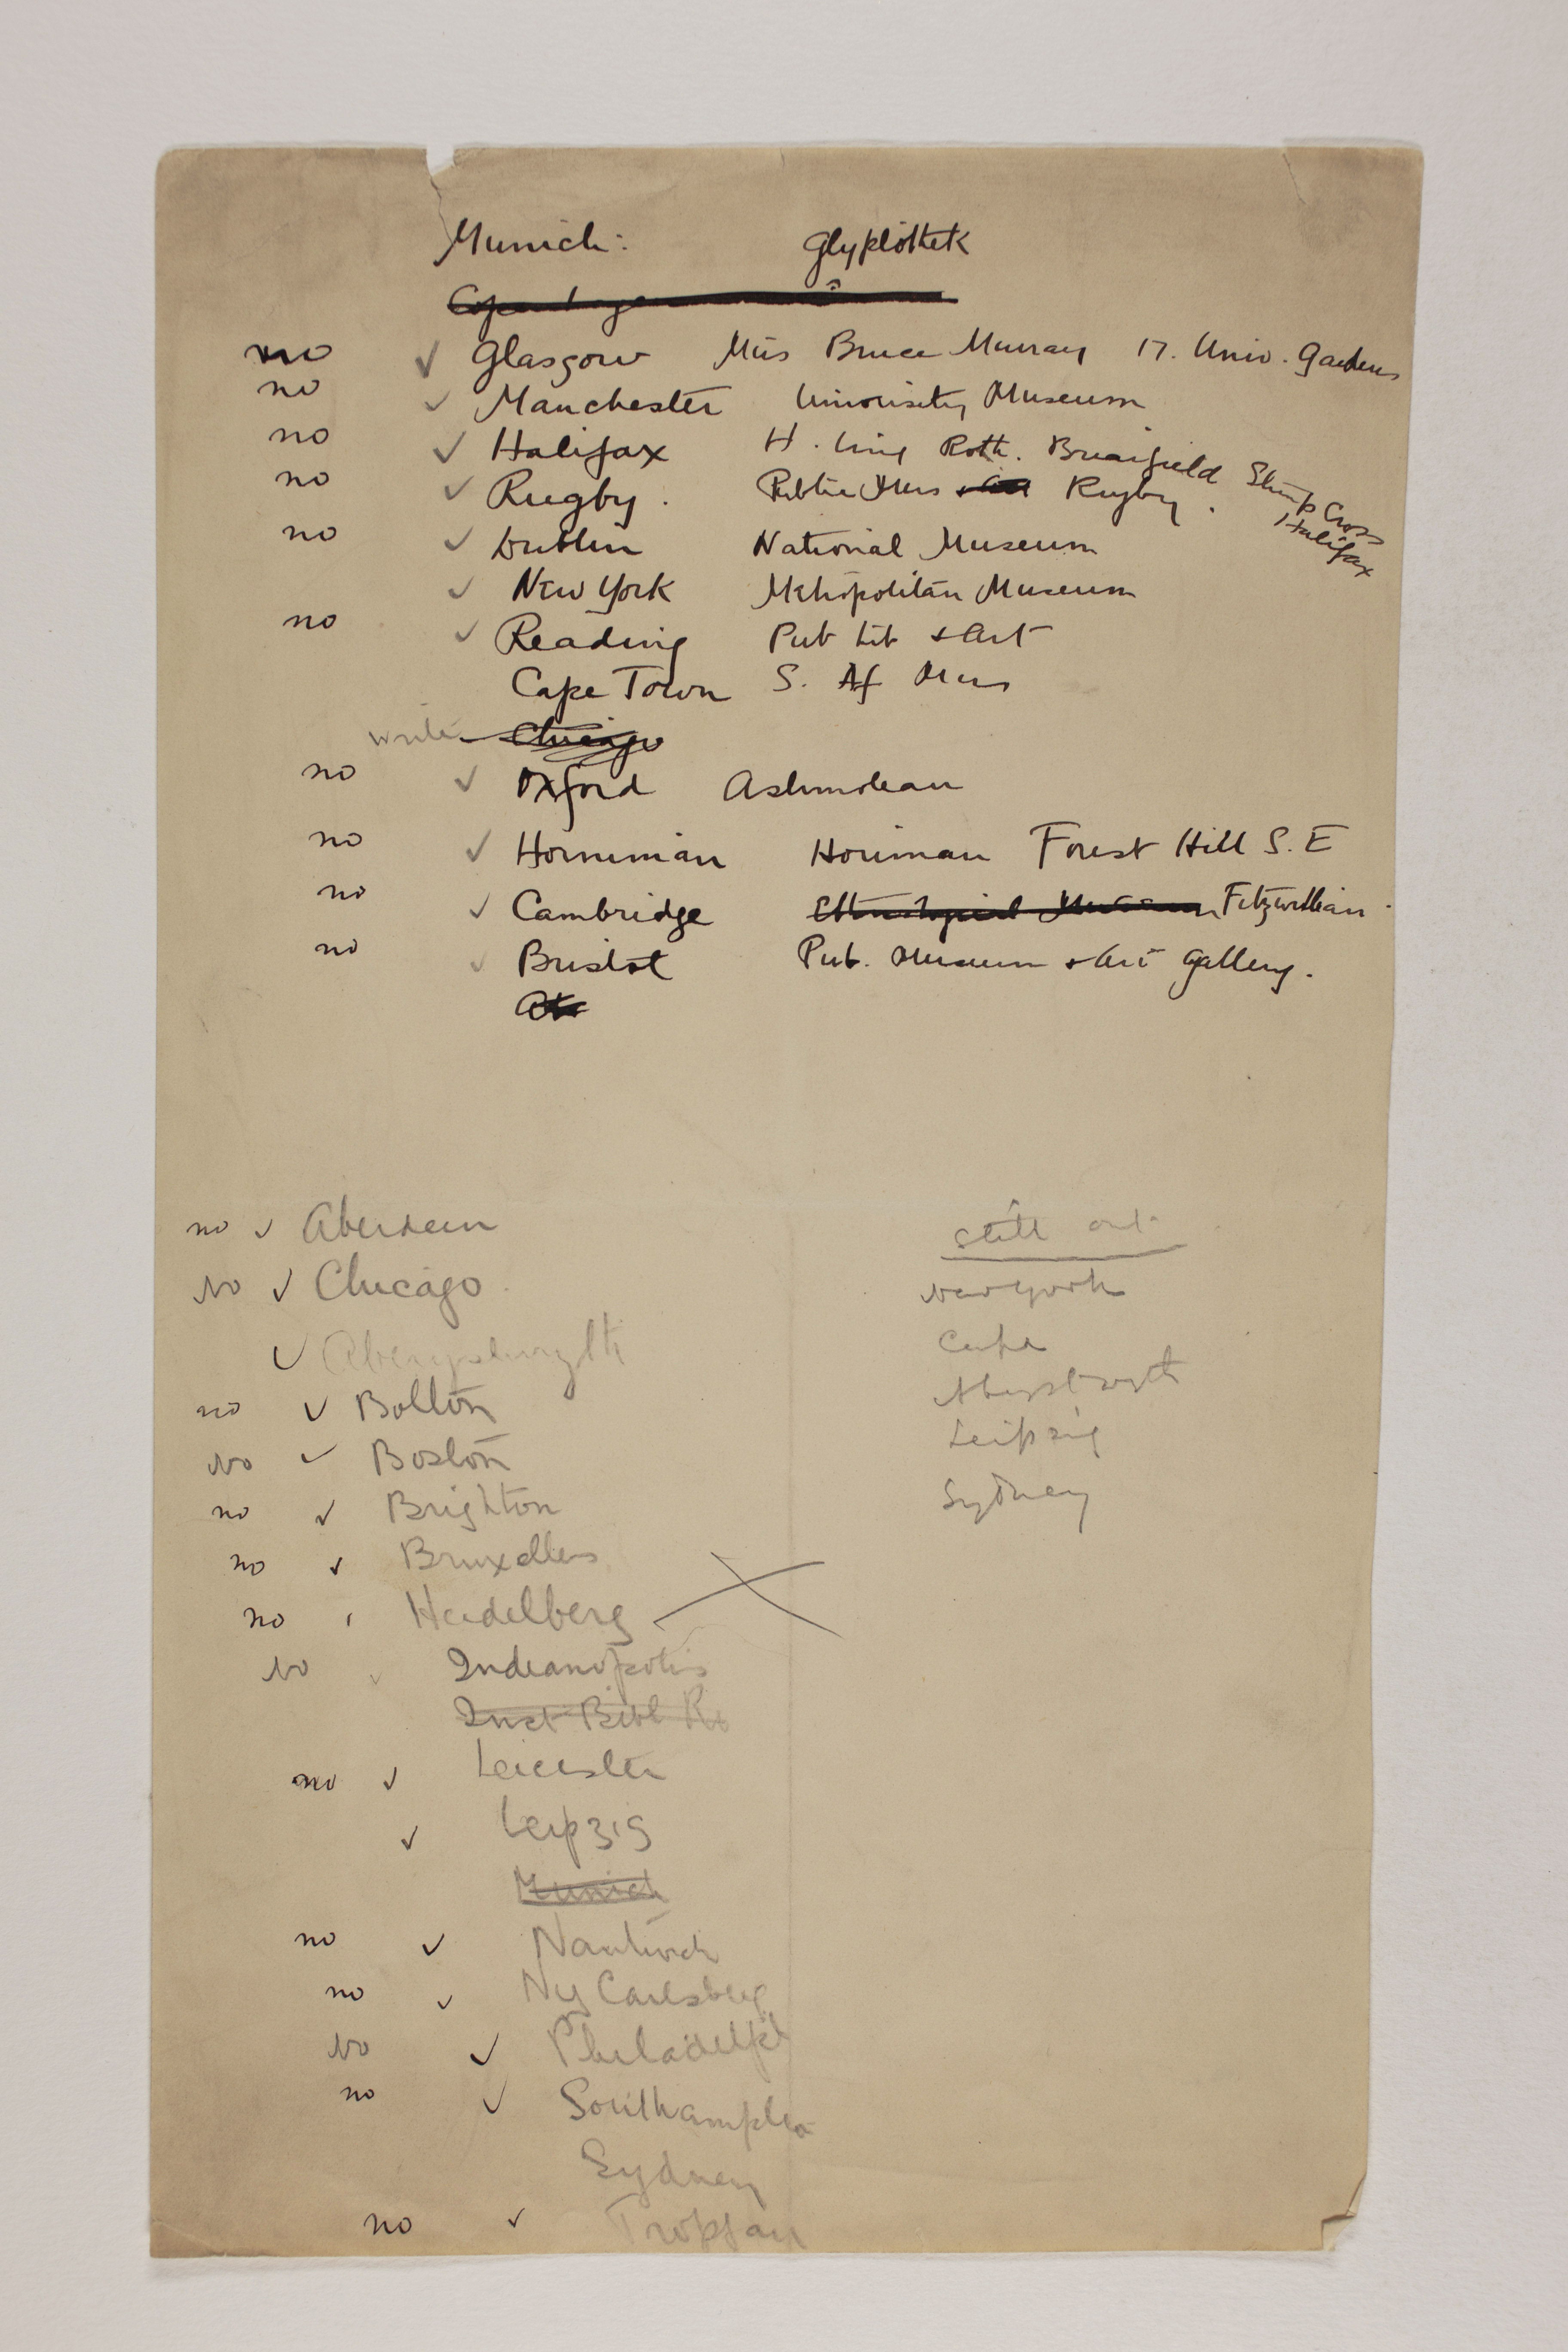 Munich: Glyptothek
Copenhagen
no ✓ Glasgow Miss Bruce Murray 17. Univ. Gardens
no ✓ Manchester University Museum
no ✓ Halifax H. Ling Roth. Briarfield Stump Cross Halifax
no ✓ Rugby. Public Mus Rugby.
no ✓ Dublin National Museum
✓ New York Metropolitan Museum
no ✓ Reading Pub Lib + Art
Cape Town S. Af Mus
write Chicago
no ✓ Oxford Ashmolean
no ✓ Horniman Horniman Forest Hill S.E
no ✓ Cambridge Ethnological Museum Fitzwilliam
no ✓ Bristol Pub. Museum + Art Gallery.
no ✓ Aberdeen
No ✓ Chicago
✓ Aberystwyth
no ✓ Bolton
No ✓ Boston
no ✓ Brighton
no ✓ Bruxelles
no Heidelberg
No ✓ Indianopolis
Inst Bibl Ro
no ✓ Leicester
✓ Leipzig
Munich
no ✓ Nantwich
no ✓ Ny Carlsberg
No ✓ Philadelph
no ✓ Southampton
Sydney
no ✓
Still out
New York
Cape
Aberystwyth
Leipzig
Sydney